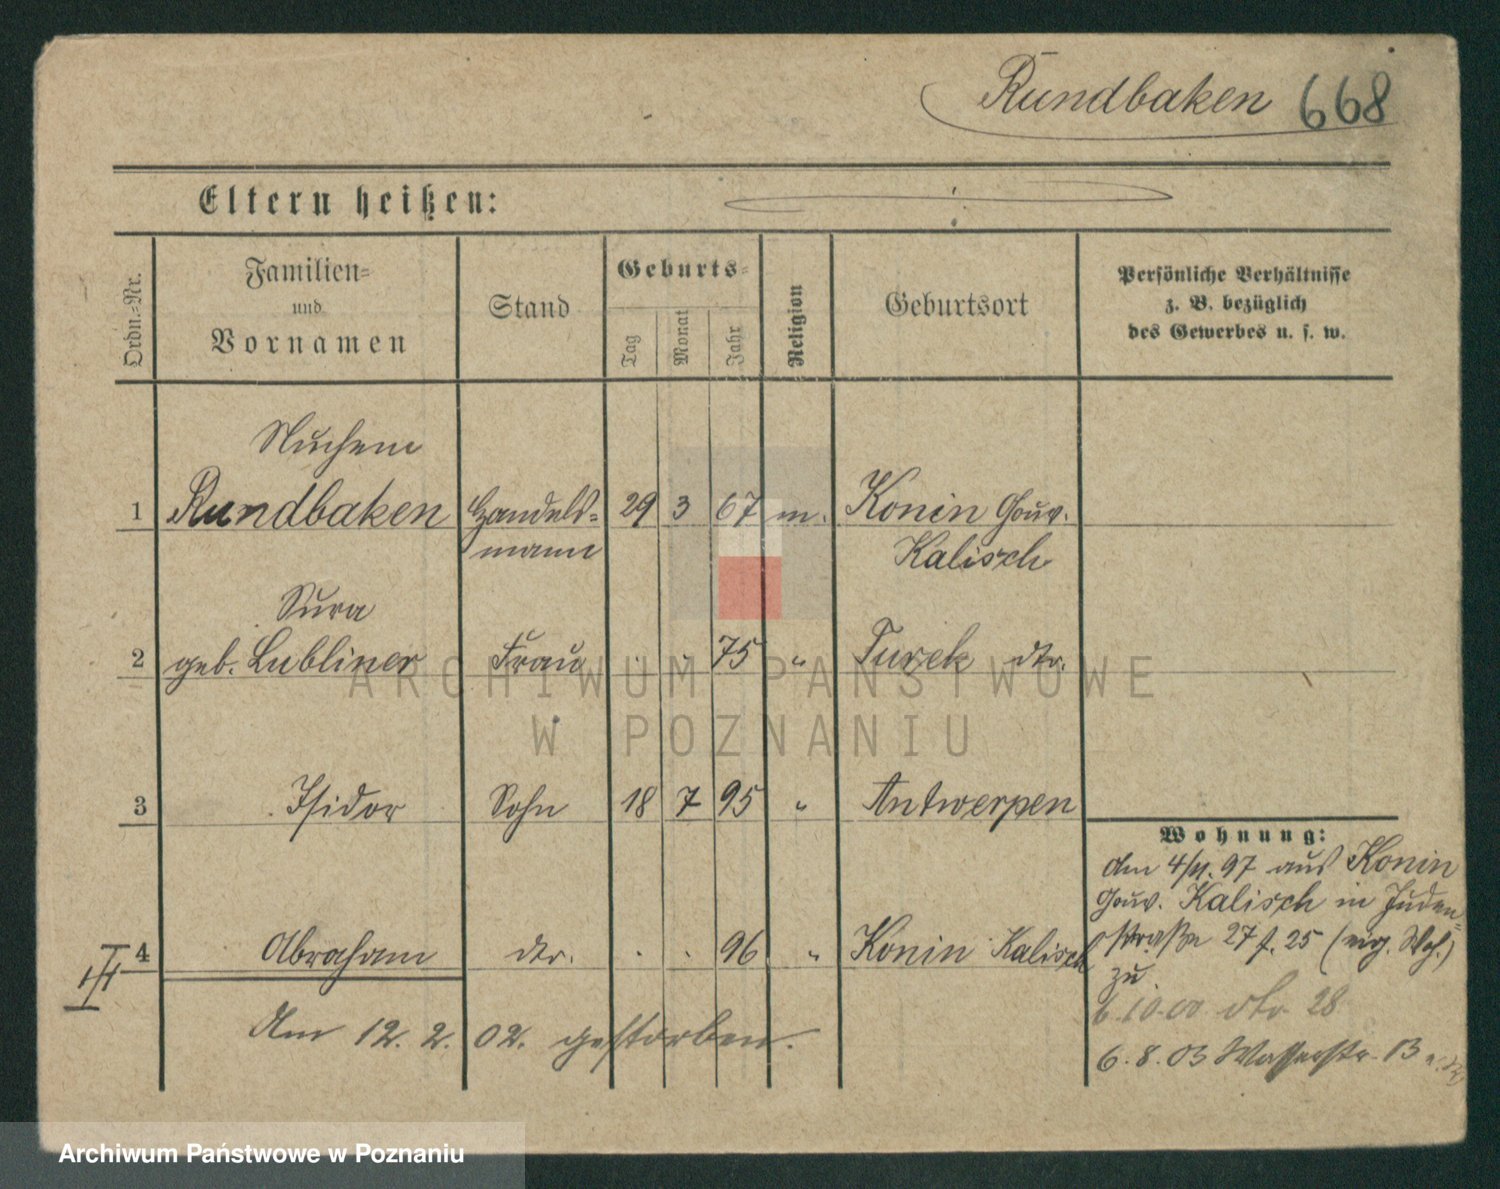 Rundbaken 668
Eltern heißen:
Ordn.-Nr.
Familien-
und
Vornamen
Stand
Geburts-
Tag
Monat
Jahr
Religion
Geburtsort
Persönliche Verhältnisse
z. B. bezüglich
des Gewerbes u. s. w.
Nuchem
1 Rundbaken Handels- 29 3 67 m. Konin Gouv.
mann Kalisch
Sura
2 geb. Lubliner Frau . . 75 " Turek dto.
ARCHIWUM PAŃSTWOWE
W POZNANIU
3 Isidor Sohn 18 7 95 " Antwerpen
Wohnung:
Am 4/11. 97 aus Konin
Gouv. Kalisch in Juden-
4 Abraham dto. . . 96 " Konin Kalisch
straße 27 f. 25 (eig. Whg.)
zu.
III
Am 12. 2. 02. gestorben.
6.10.00 dto 28
6.8.03 Wasserstr. 13
Archiwum Państwowe w Poznaniu